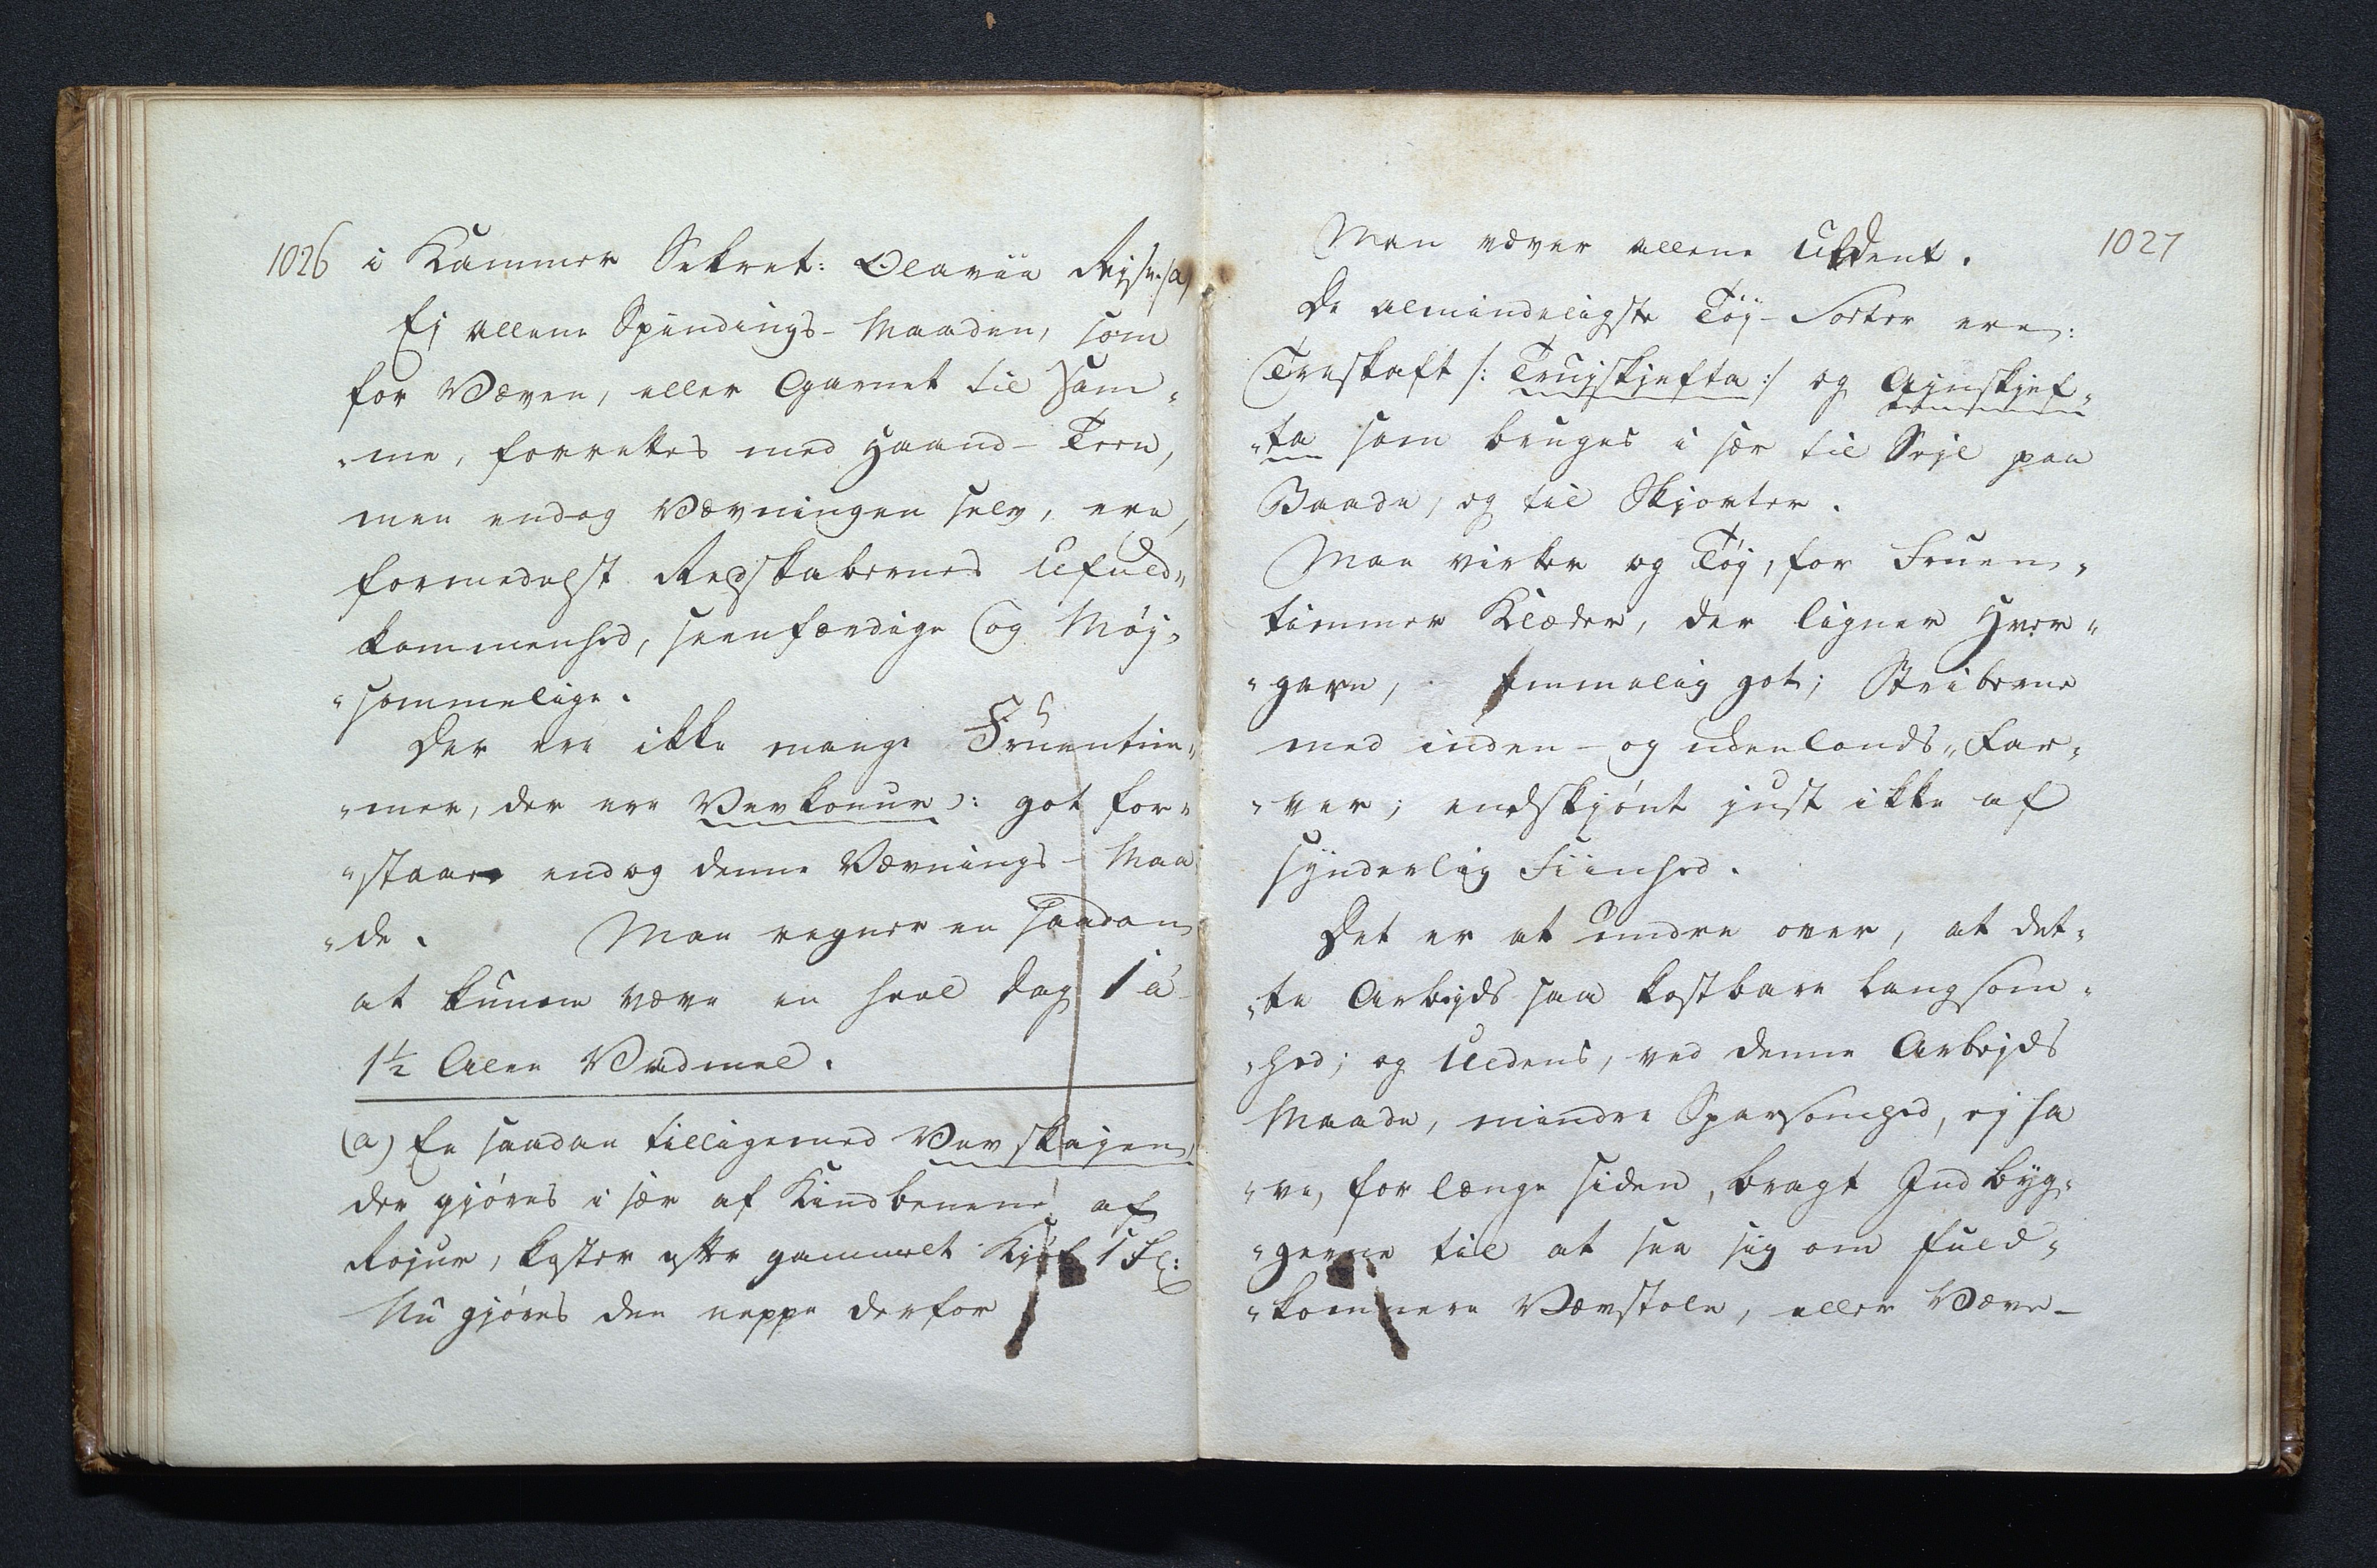 1026
i Kammer Sekret: Olavii Rejse. (a)
Ej allene Spindings-Maaden, som
for Væven, eller Garnet til Sam-
-me, forrettes med Haand-Teen,
men endog Vævningen selv, ere,
formedelst Redskabernes Ufuld-
kommenhed, seenfærdige og Møj-
-sommelige.
Der ere ikke mange Fruentim-
-mer, der ere Vevkonur ɔ: got for-
-staae endog denne Vævnings-Maa
-de. Man regner en saadan
at kunne væve en heel Dag 1 á
1½ Alen Vadmel.
(a) En saadan tilligemed Vevskejen,
der gjöres i sær af Kindbenene af
Rojur, koster efter gammelt Kjöb 1 Sl:
Nu gjöres den neppe derfor
1027
Man væver allene Uldent.
De almindeligste Töj-Sorter ere:
Treskaft /: Trujskjefta :/ og Ajnskjef-
-ta som bruges i sær til Sejl paa
Baade, og til Skjorter.
Man virker og Töj, for Fruen-
timmer Klæder, der ligner Hver-
-garn, temmelig got; Striberne
med inden- og udenlands-Far-
-ver; endskjönt just ikke af
synderlig Fiinhed.
Det er at undre over, at det-
-te Arbejds saa kostbare Langsom-
-hed; og Uldens, ved denne Arbejds
Maade, mindre Sparsomhed, ej ha
-ve, for længe siden, bragt Indbyg-
-gerne til at see sig om fuld-
-komnere Vævstole, eller Væve-